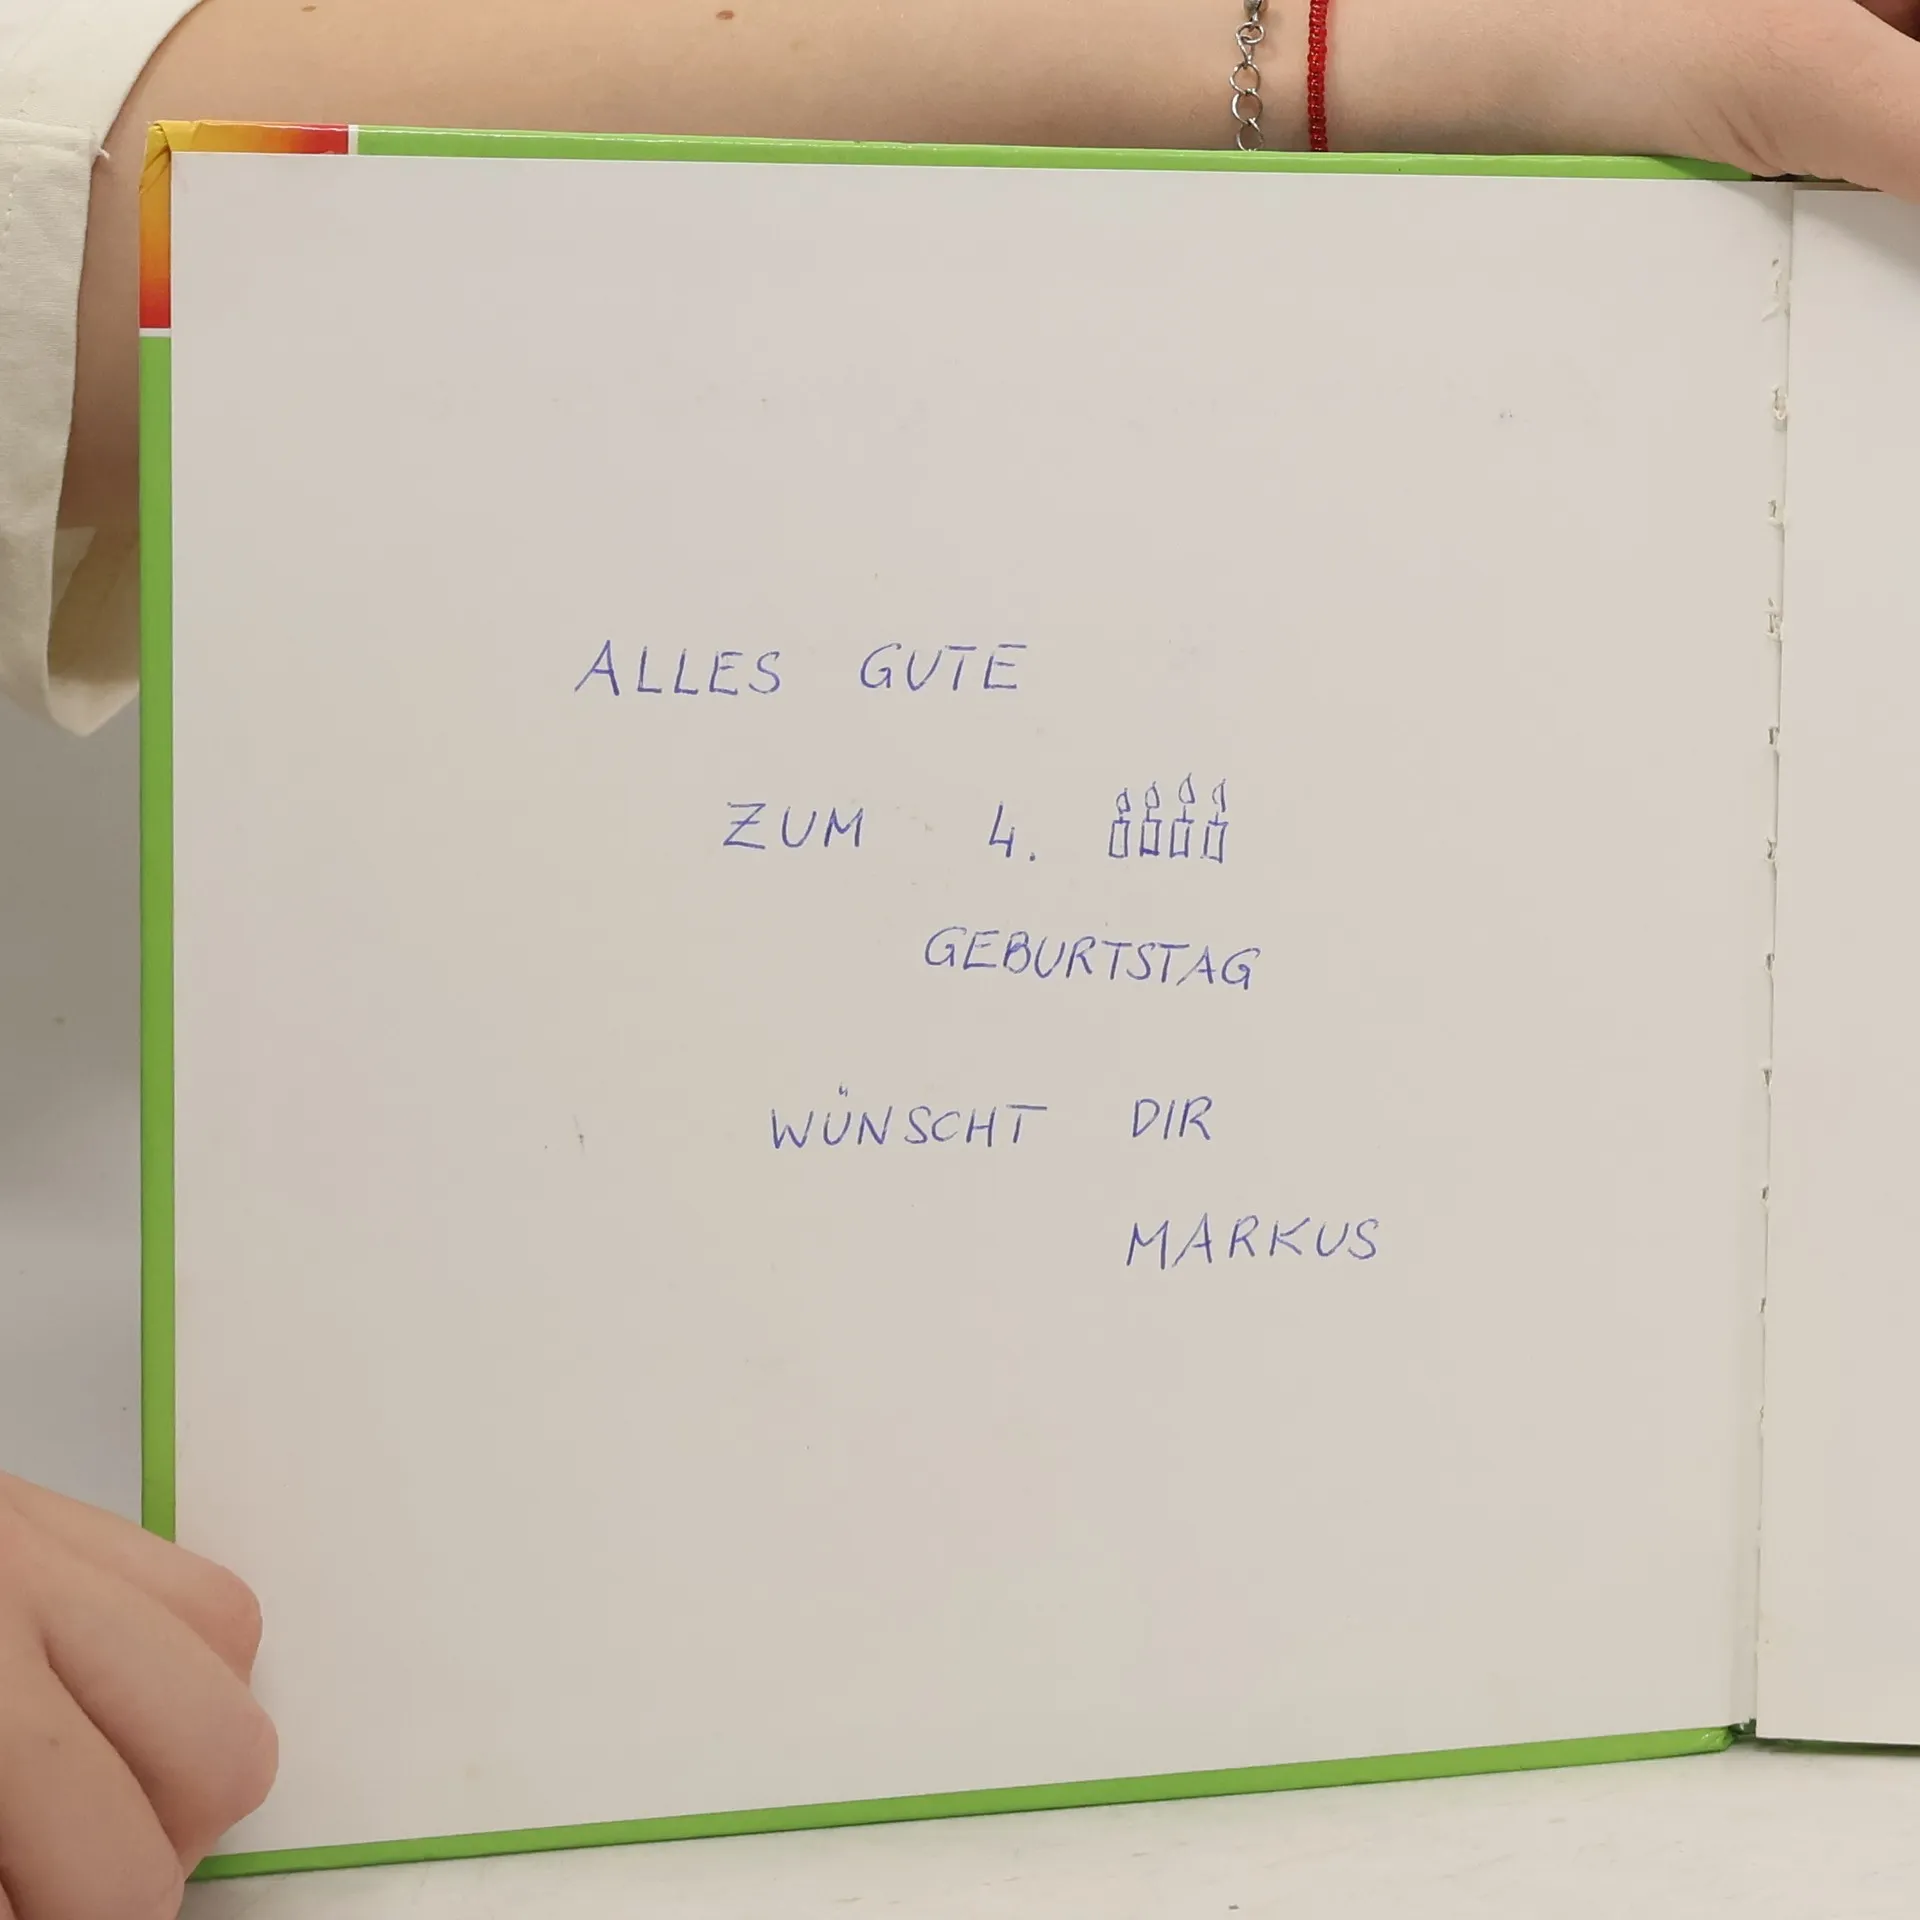 ALLES GUTE
ZUM 4.
GEBURTSTAG
WÜNSCHT DIR
MARKUS